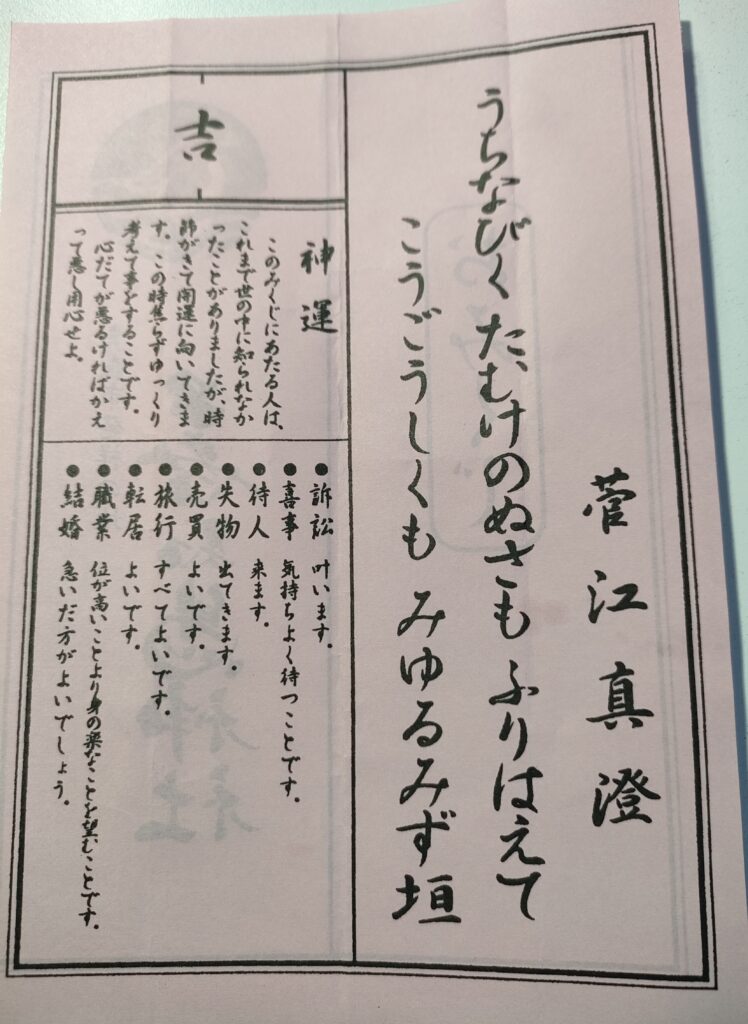 菅江真澄
うちなびく たむけのぬさも ふりはえて
こうごうしくも みゆるみず垣
吉
神運
このみくじにあたる人は、
これまで世の中に知られなか
ったことがありましたが、時
節がきて開運に向いてきま
す。この時焦らずゆっくり
考えて事をすることです。
心だてが悪るければかえ
って悪し用心せよ。
●訴訟 叶います。
●喜事 気持ちよく待つことです。
●待人 来ます。
●失物 出てきます。
●売買 よいです。
●旅行 すべてよいです。
●転居 よいです。
●職業 位が高いことより身の楽なことを望むことです。
●結婚 急いだ方がよいでしょう。